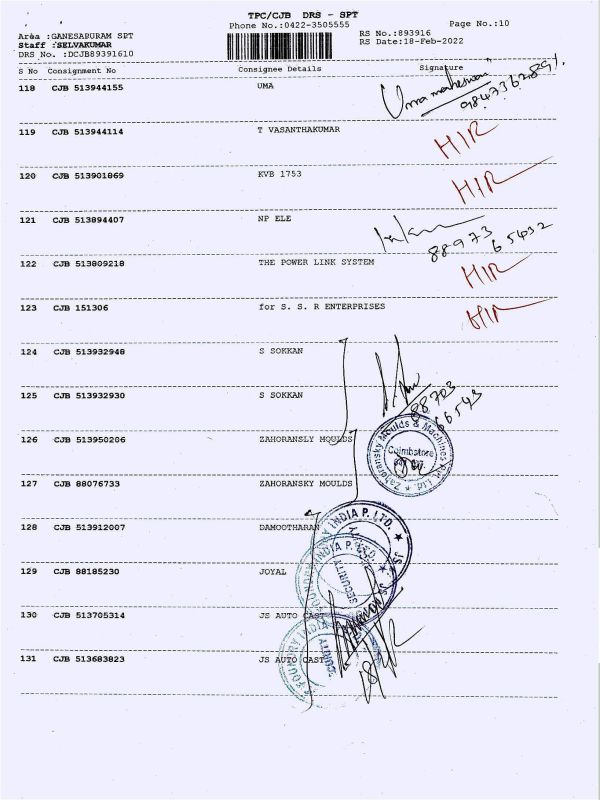 TPC/CJB DRS - SPT
Phone No.:0422-3505555
Page No.:10
Area :GANESAPURAM SPT
Staff :SELVAKUMAR
DRS No. :DCJB89391610
RS No.:893916
RS Date:18-Feb-2022
S No Consignment No Consignee Details Signature
118 CJB 513944155 UMA
Uma maheswari
119 CJB 513944114 T VASANTHKUMAR
HIR
120 CJB 513901869 KVB 1753
HIR
121 CJB 513894407 NP ELE
88973
65432
122 CJB 513809218 THE POWER LINK SYSTEM
HIR
123 CJB 151306 for S. S. R ENTERPRISES
HIR
124 CJB 513932948 S SOKKAN
125 CJB 513932930 S SOKKAN
88703
66543
126 CJB 513950206 ZAHORANSLY MOULDS
Zahoransky Moulds & Machines Pvt. Ltd.
Coimbatore
127 CJB 88076733 ZAHORANSKY MOULDS
128 CJB 513912007 DAMOOTHARAN
FOUNDRY INDIA P. LTD. ★ JS
129 CJB 88185230 JOYAL
SECURITY
130 CJB 513705314 JS AUTO CAST
131 CJB 513683823 JS AUTO CAST
FOUNDRY INDIA